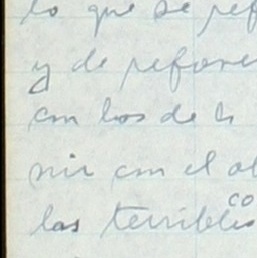 lo que se ref
y de refores
con los de h
nir con el ol
co
las terribles